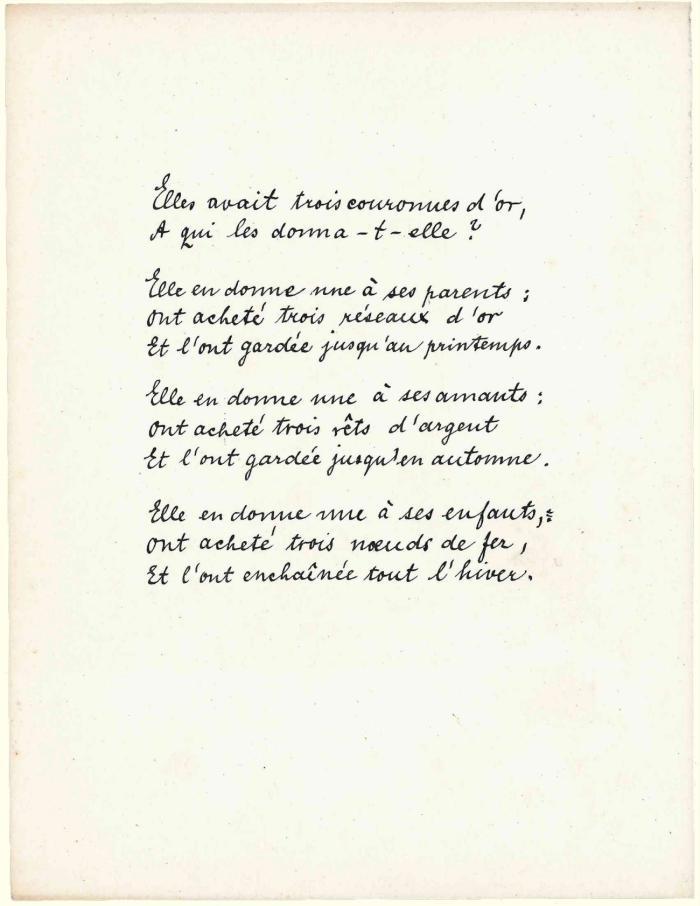 Elles avait trois couronnes d'or,
A qui les donna-t-elle ?
Elle en donne une à ses parents :
Ont acheté trois réseaux d'or
Et l'ont gardée jusqu'au printemps.
Elle en donne une à ses amants :
Ont acheté trois rêts d'argent
Et l'ont gardée jusqu'en automne.
Elle en donne une à ses enfants, :
Ont acheté trois nœuds de fer,
Et l'ont enchaînée tout l'hiver.